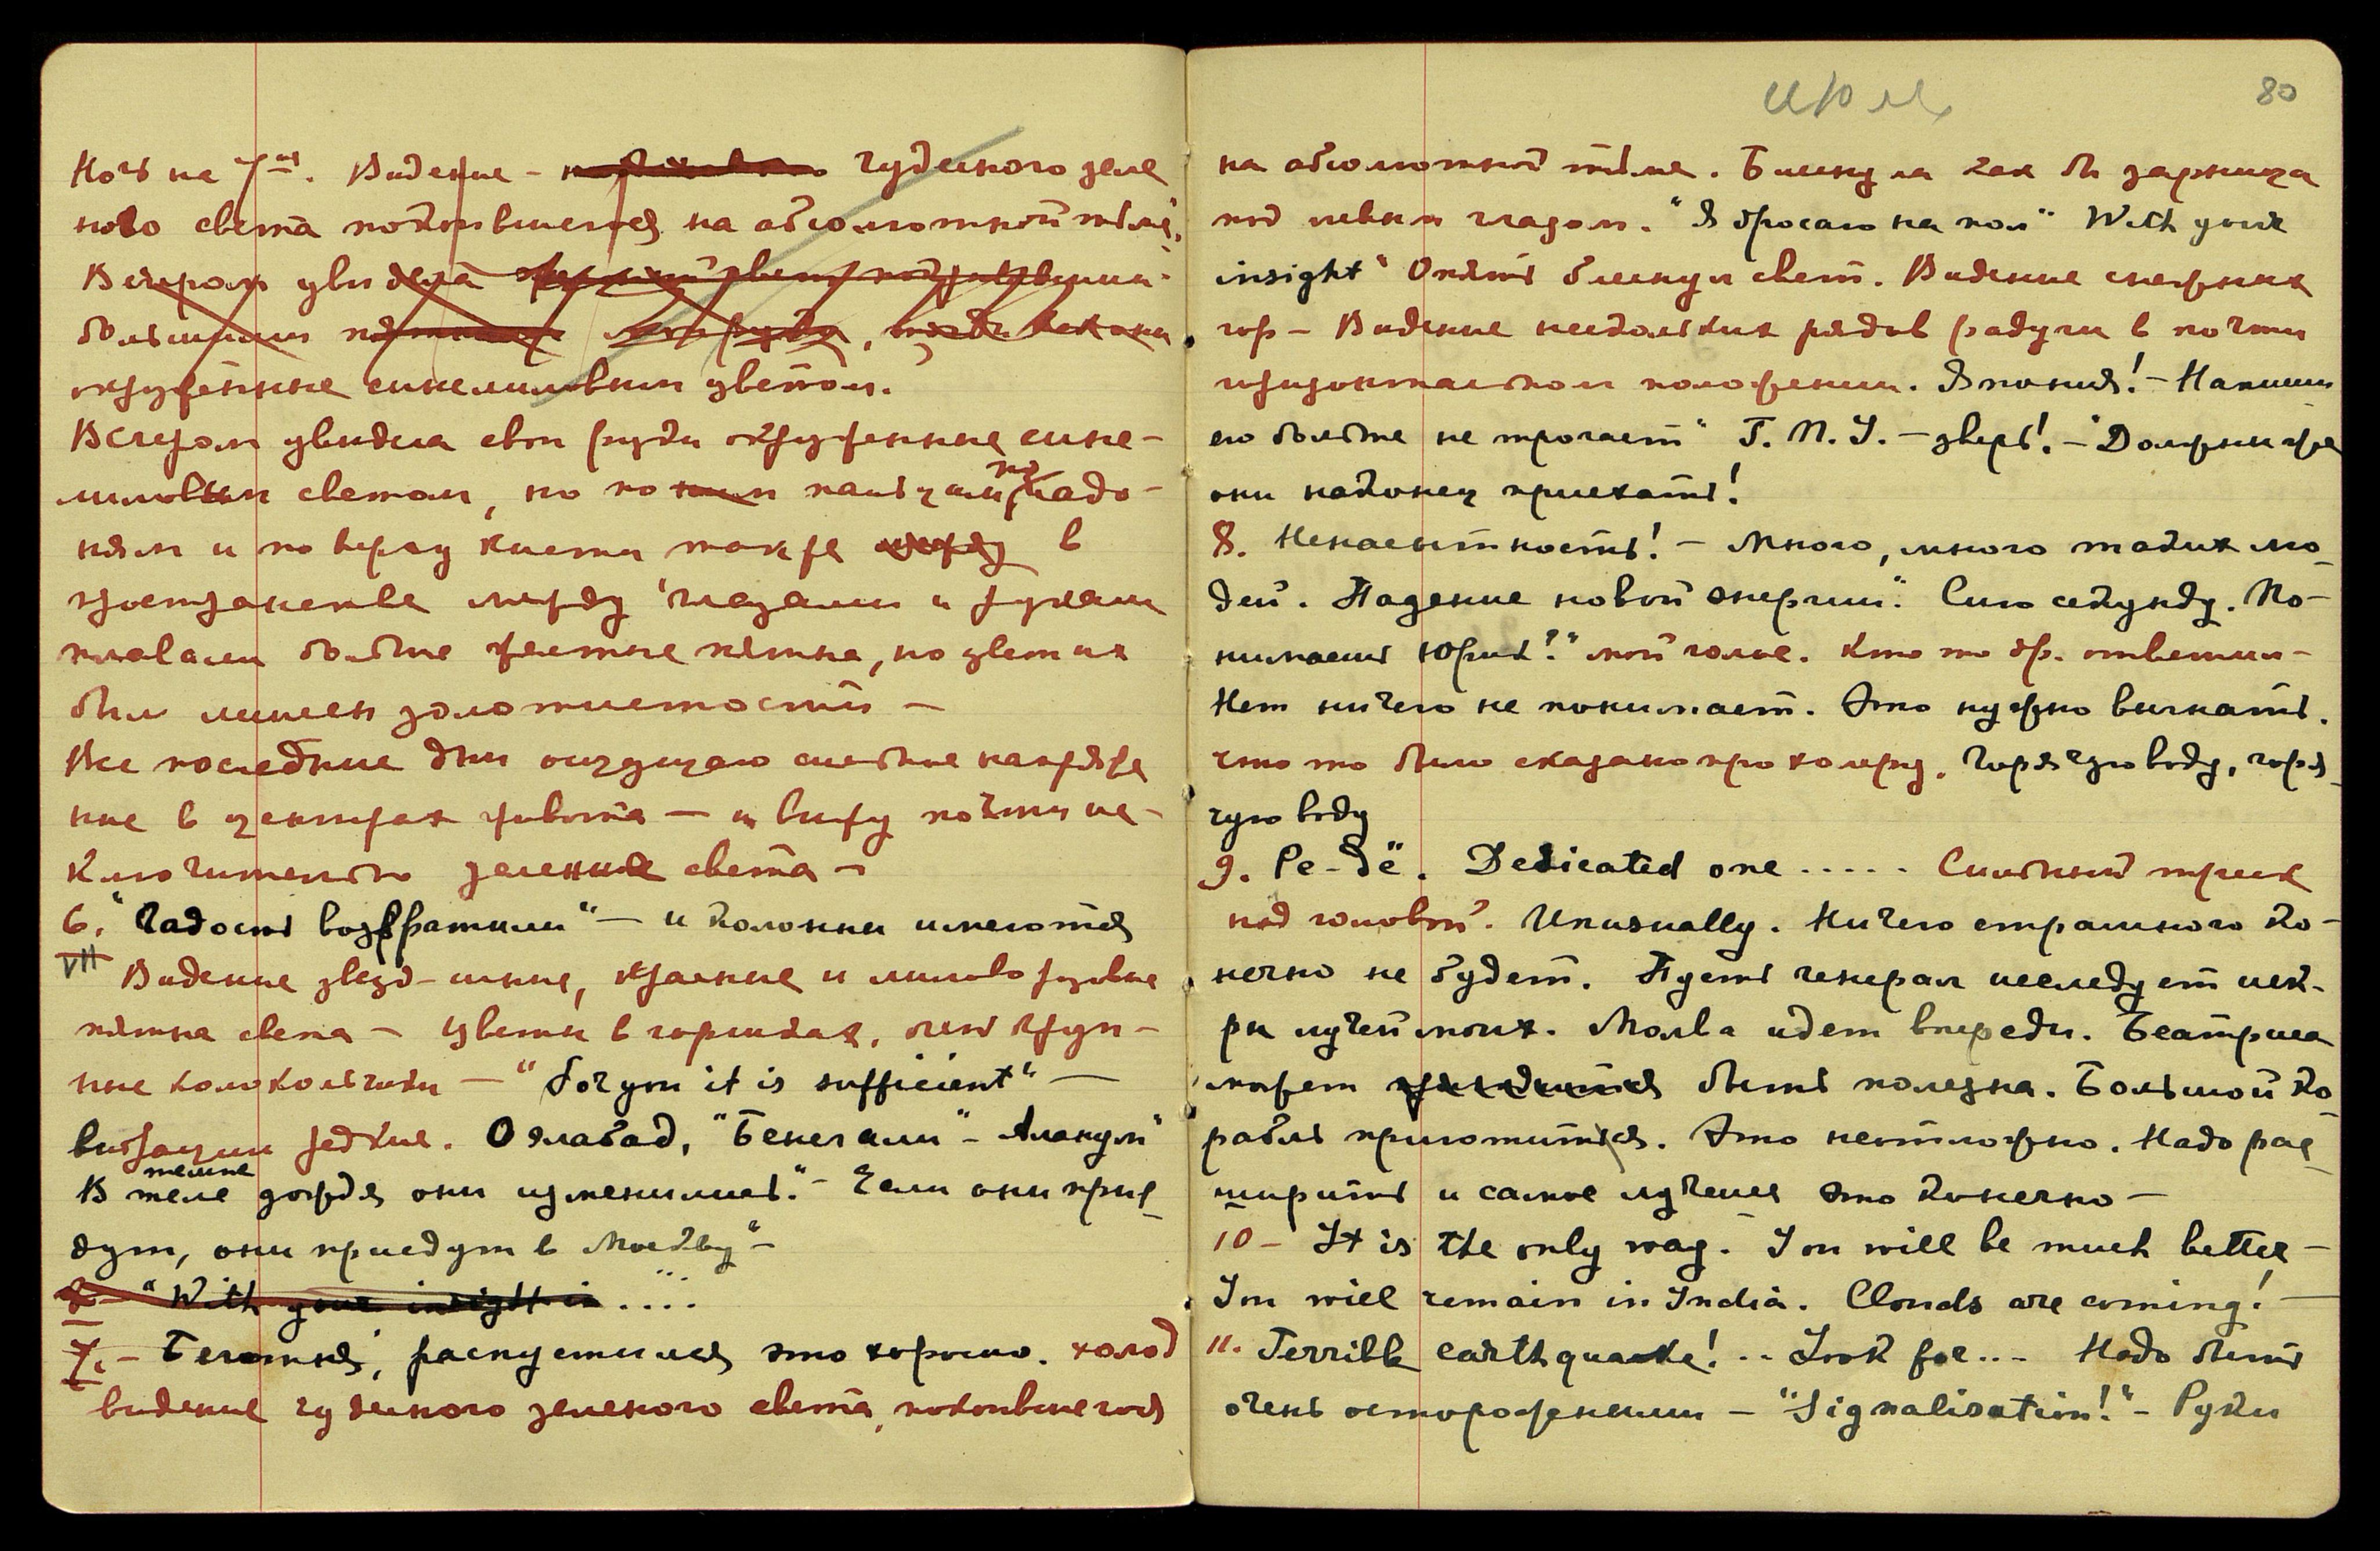 Ночь на 7ое. Видение – чудесного зеле
ного света покоившегося на абсолютной тьме.
Вечером увидела
большими
окруженные синелиловым цветом.
Вечером увидела свои руки окруженные сине-
лиловым светом, но по пальцам, по ладо-
ням и по верху кисти также в
пространстве между глазами и руками
плавали большие желтые пятна, но цвет их
был лишен золотистости –
Все последние дни ощущаю сильное напряже
ние в центрах живота – и вижу почти ис-
ключительно зеленые света –
6. "Гадость возвратили" – и колонны имеются
VII Видение звезд – синие, красные и лилово розовые
пятна света – цветы в горшках, очень круп-
ные колокольчики – "For you it is sufficient" –
вибрации редкие. Оялабад, "Бенегали" – Алакул"
В темне теле дождя они изменились." – Если они прие
дут, они приедут в Москву" –
"With your insight is ....
7. – Беготня, распустился это хорошо. холод
видение чудесного зеленого света, покоившегося
июль 80
на абсолютной тьме. Блеснула как бы зарница
под левым глазом. "Я бросаю на пол" With your
insight" Опять блеснул свет. Видение снежных
гор – Видение нескольких рядов радуги в почти
горизонтальном положении. Япония! – Напиши
его больше не трогает" Г.П.У. – зверь! – "Должны же
они наконец приехать!
8. Ненасытность! – Много, много таких лю
дей. Падение новой энергии". Сию секунду. По-
нимаешь Юрик?" мой голос. Кто то др. ответил –
Нет ничего не понимает. Это нужно вычкать.
что то было сказано про холеру. Горячую воду, горя
чую воду
9. Ре-дё. Dedicated one ..... Сильный треск
над головой. Unusually. Ничего страшного ко-
нечно не будет. Пусть генерал исследует иск-
ры лучей моих. Молва идет впереди. Беатриса
может быть полезна. Большой ко
рабль приготовится. Это неотложно. Надо рас
ширить и самое лучшее это конечно –
10 – It is the only way. You will be much better –
You will remain in India. Clouds are coming! –
11. Terrible earthquake! .. Look for ... Надо быть
очень осторожными – "Signalisation!" – Руки